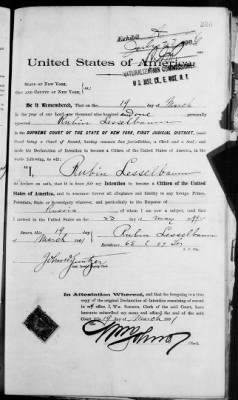 Exhibit
286
United States of America
NATURALIZATION COMMISSION
U. S. DIST. CT. E. DIST. N. Y.
STATE OF NEW YORK,
CITY AND COUNTY OF NEW YORK, } ss.:
Be it Remembered, That on the 19 day of March
in the year of our Lord one thousand nine hundred and one personally
appeared Rubin Lesselbaum
in the SUPREME COURT OF THE STATE OF NEW YORK, FIRST JUDICIAL DISTRICT, (said
Court being a Court of Record, having common law jurisdiction, a Clerk and a Seal), and
made his Declaration of Intention to become a Citizen of the United States of America, in the
words following, to wit:
"I, Rubin Lesselbaum
do declare on oath, that it is bona fide my Intention to become a Citizen of the United
States of America, and to renounce forever all allegiance and fidelity to any foreign Prince,
Potentate, State or Sovereignty whatever, and particularly to the Emperor of
Russia of whom I am now a subject, and that
I arrived in the United States on the 22 day of May
Sworn, this 19 day of
March 1901
Rubin Lesselbaum
Residence,
In Attestation Whereof, and that the foregoing is a true
copy of the original Declaration of Intention remaining of record
in my office, I, Wm. Sohmer, Clerk of the said Court, have
hereunto subscribed my name and affixed the seal of the said
Court this 19 day of March 1901
Wm Sohmer
Clerk.